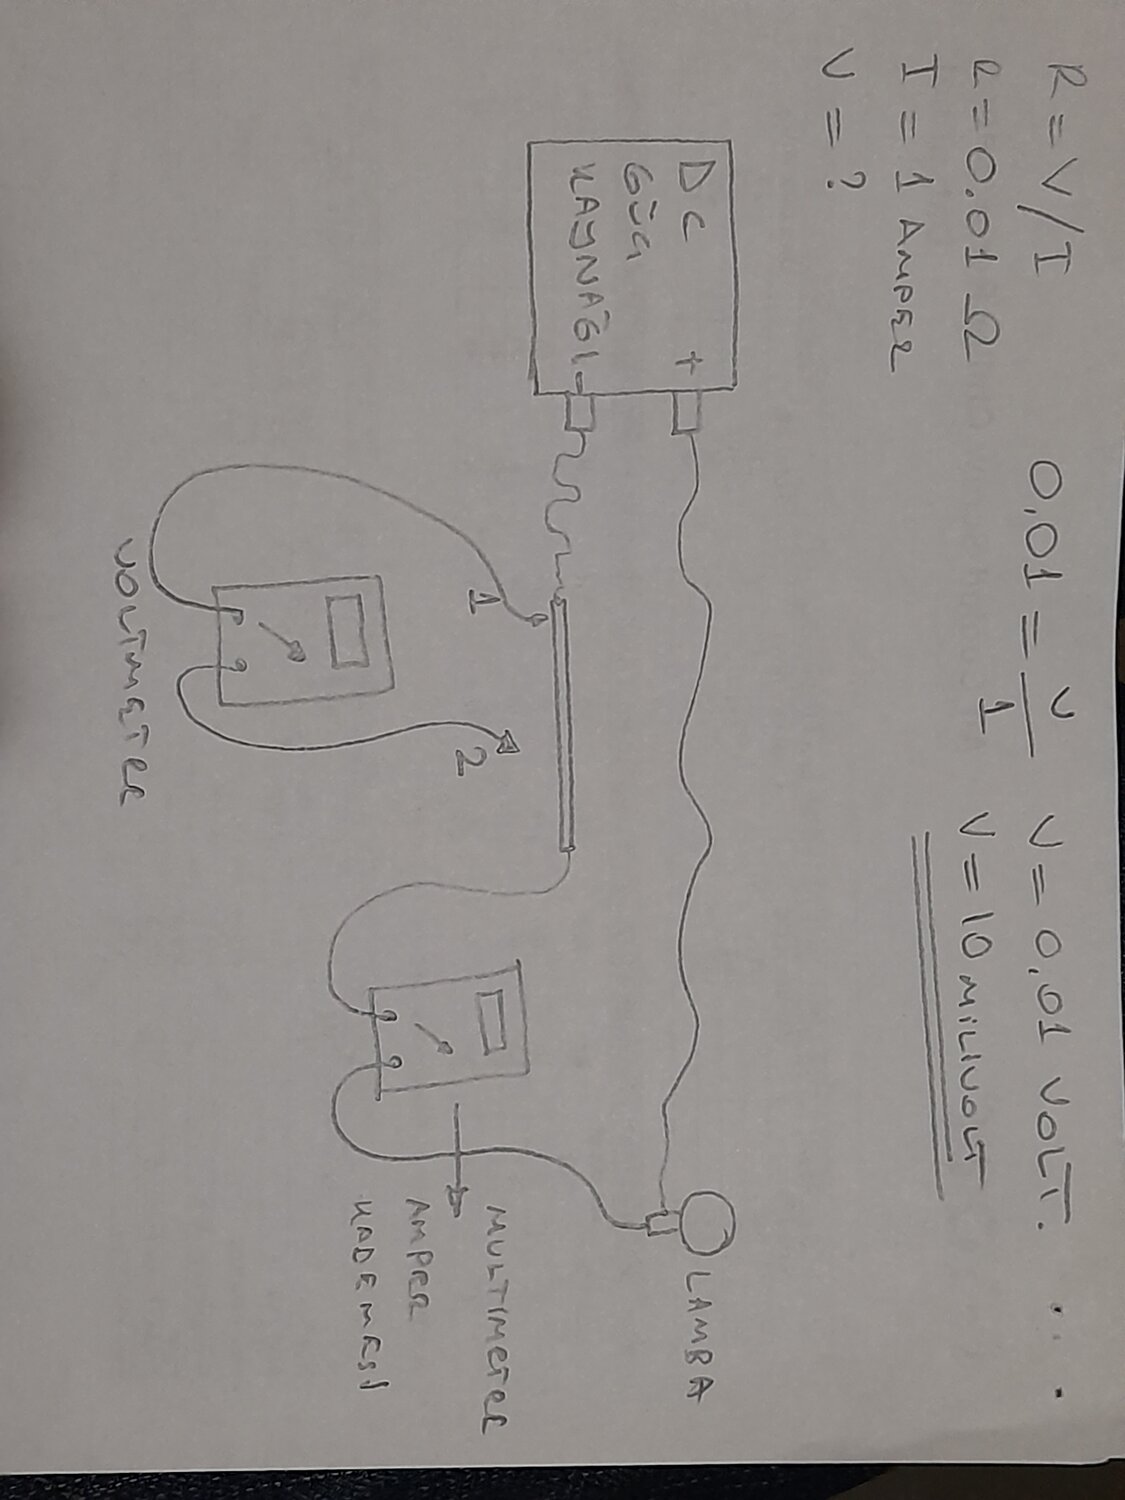 R = V/I
R = 0.01 Ω
I = 1 AMPER
V = ?
0,01 = V/1
V = 0,01 VOLT.
V = 10 MİLİVOLT
DC
GÜÇ
KAYNAĞI
+
-
1
2
VOLTMETER
LAMBA
MULTIMETER
AMPER
KADEMESİ